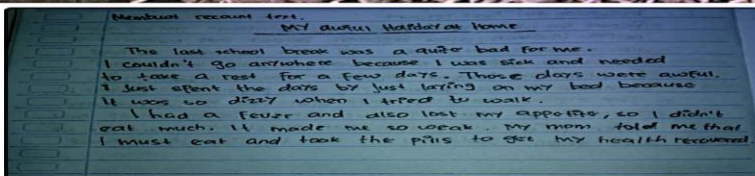 Membuat recount text.
MY awful Holiday at Home
The last school break was a quite bad for me.
I couldn't go anywhere because I was sick and needed
to take a rest for a few days. Those days were awful.
I Just spent the days by just laying on my bed because
It was so dizzy when I tried to walk.
I had a Fever and also lost my appetite, so I didn't
eat much. It made me so weak. My mom told me that
I must eat and took the pills to get my health recovered